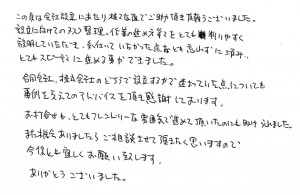 この度は会社設立にあたり様々な面でご助力頂き有難うございました。
設立に向けてのタスク整理、作業の進め方などをとても判りやすく
説明していただき、私共にていなかった点なども忘れずに済み、
とてもスピーディに進める事ができました。
合同会社、株式会社のどちらで設立するかで迷っていた点についても
事例を交えてのアドバイスを頂き感謝しております。
お打合せも、とてもフレンドリーな雰囲気で進めて頂いたのにも助けられました。
また機会ありましたらご相談させて頂きたく思いますので
今後とも宜しくお願い致します。
ありがとうございました。